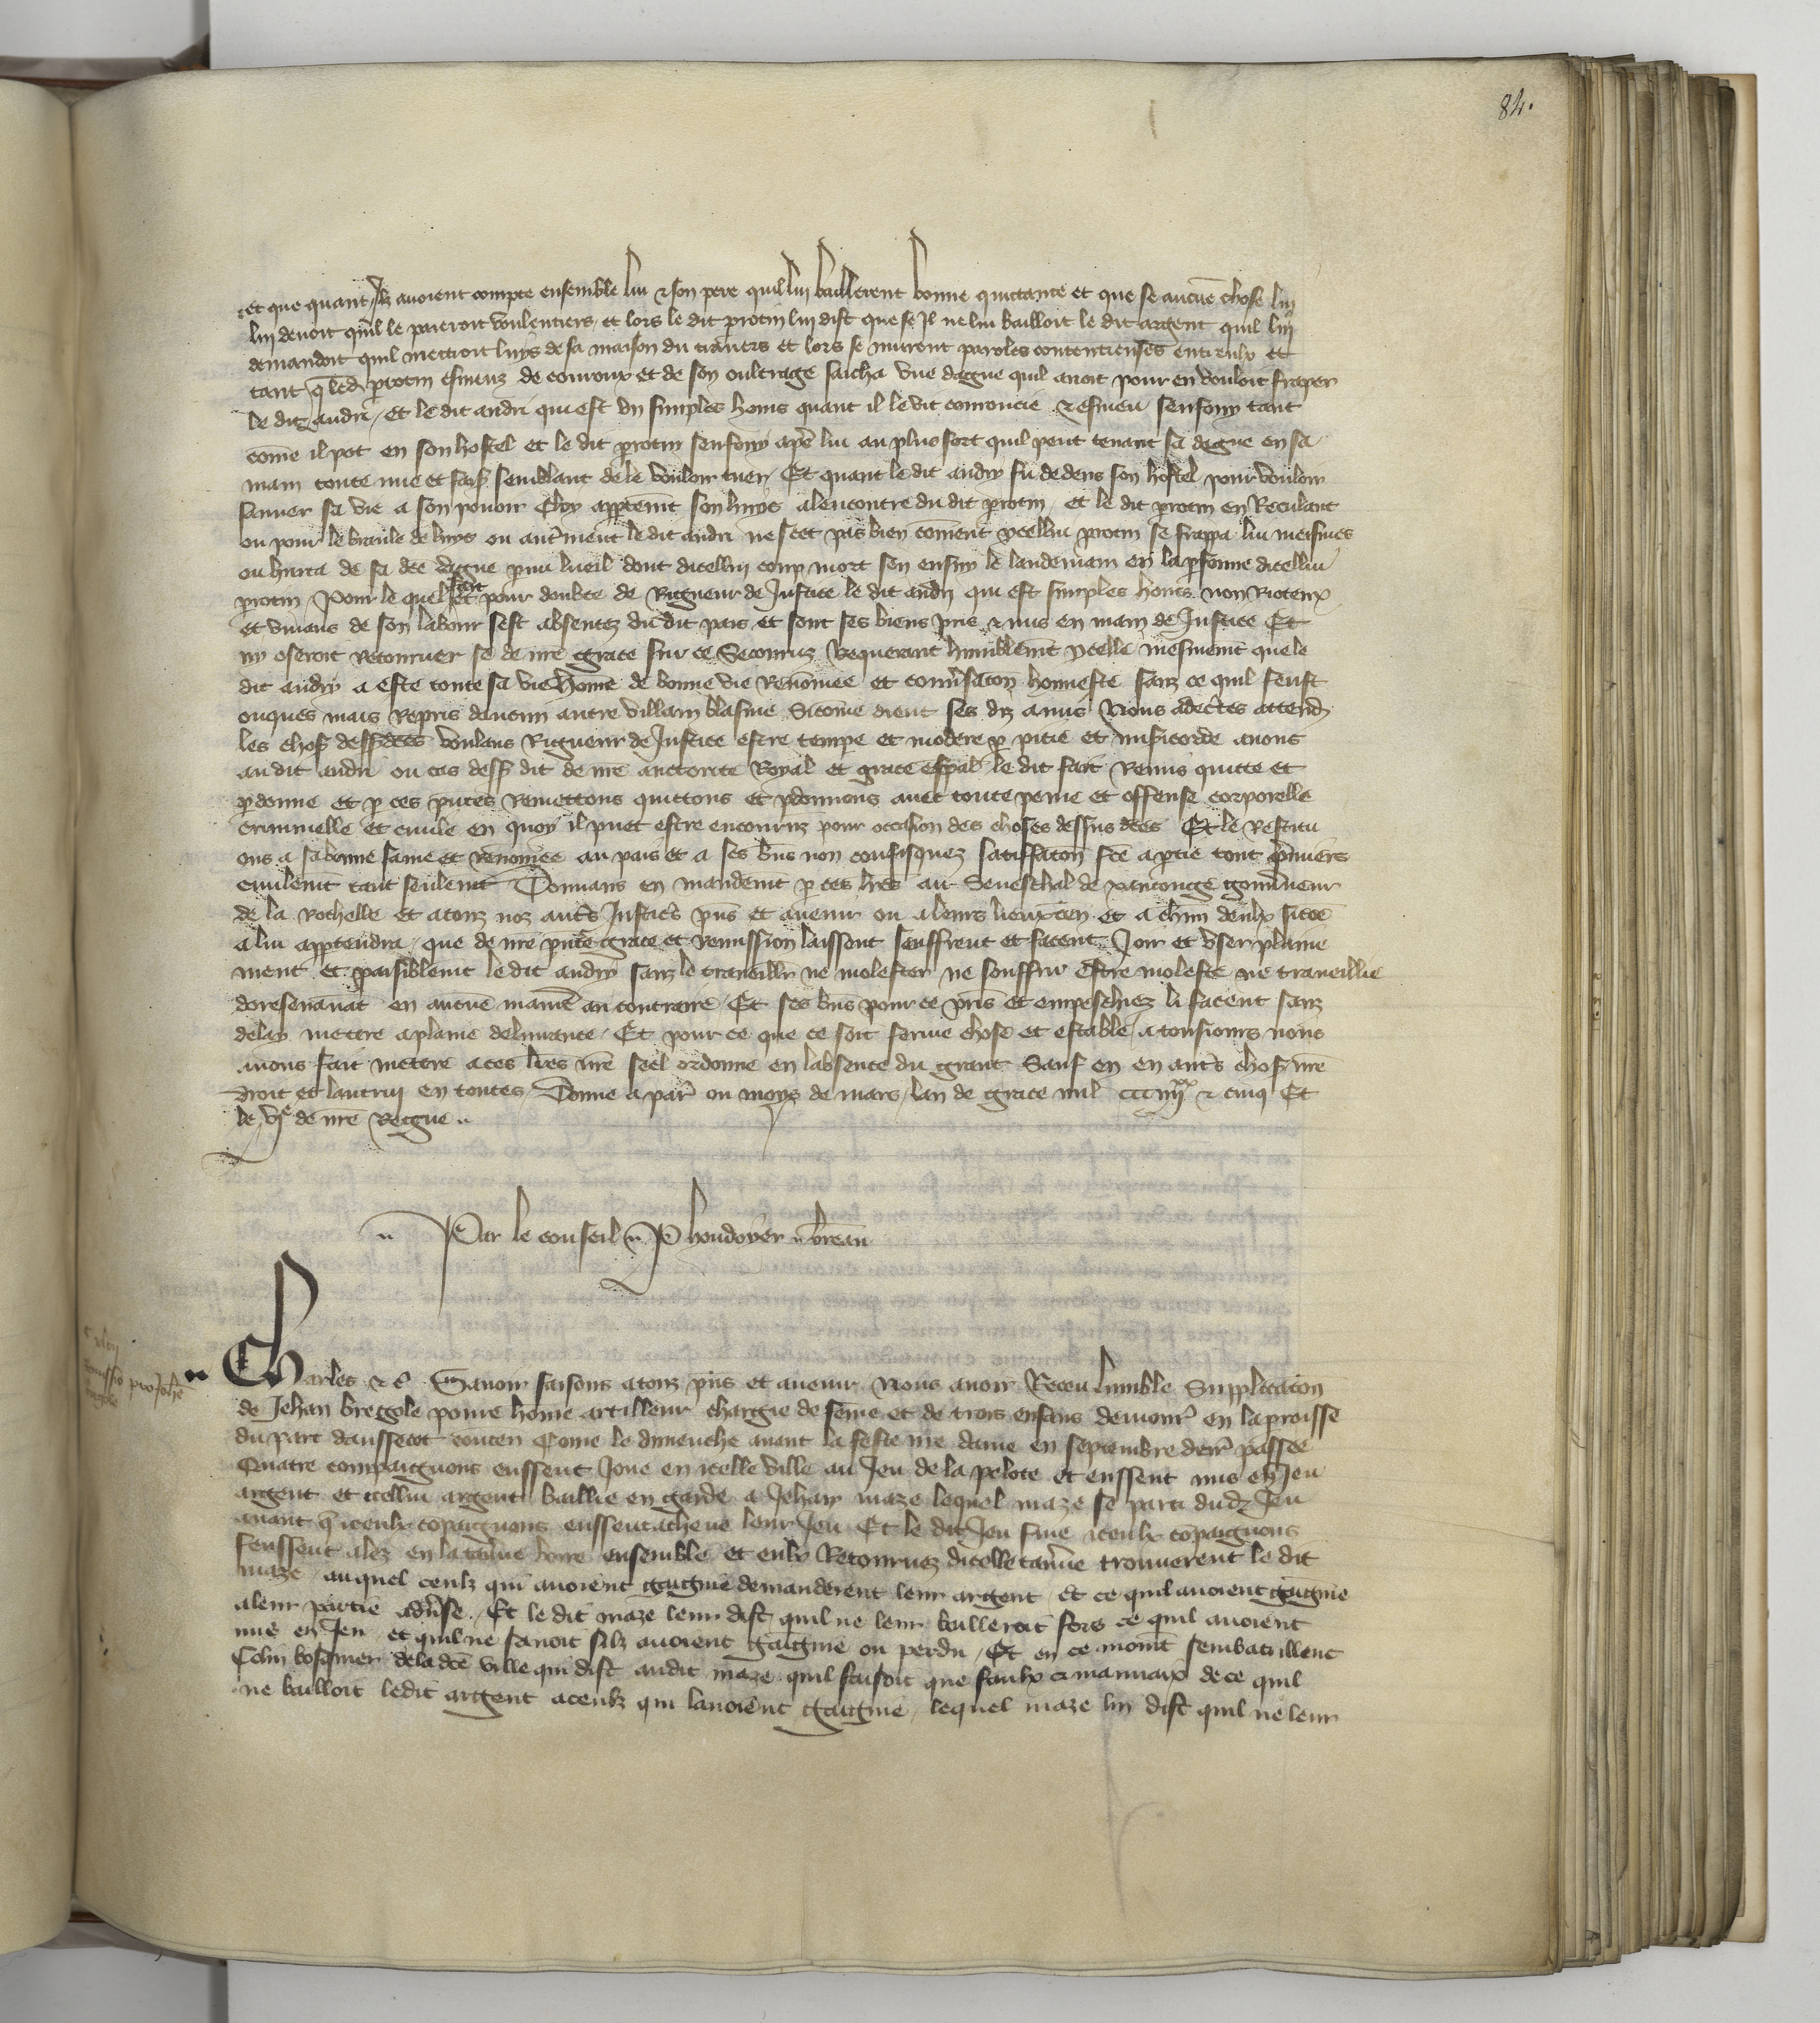 84.
et que quant ilz avoient compte ensemble lui & son pere quil lui baillerent bonne quittance et que se aucune chose lui
lui devoit quil le paieroit voulentiers et lors le dit protin lui dist que se Il ne lui bailloit le dit argent quil lui
demandoit quil mectroit luys de sa maison du travers et lors se murent paroles contencieuses entreulx et
tant q led protin esmeuz de courroux et de son oultrage sacha une dague quil avoit pour en vouloir fraper
le dit andri / Et le dit andri qui est un simples homs quant il le vit couroucie & esmeu senfouy tant
come il pot en son hostel et le dit protin senfouy apres lui au plus fort quil peut tenant sa dague en sa
main toute nue et fais semblant de le vouloir tuer / Et quant le dit andry fu dedens son hostel pour vouloir
sauver sa vie a son povoir luys alencontre du dit protin / et le dit protin en Reculant
ou pour le branle de luys ou autrment le dit andri ne scet pas bien coment ycellui protin se frappa lui meismes
ou hurta de sa dce dague parmi lueil dont dicellui coup mort sen ensuy le landemain en la psonne dicellui
protin / Pour le quel fait et pour doubte de Rigueur de Justice le dit andry qui est simples homs non Rioteux
et vivans de son labour sest absentez du dit pais et sont ses biens pris & mis en main de Justice Et
ny oseroit Retourner se de nre grace sur ce Secouruz Requerant humblemt ycelle / mesmemt que le
dit andry a este toute sa vie home de bonne vie Renomee et convsacon honneste sanz ce quil feust
onques mais Repris daucun autre villain blasme Sicome dient ses diz amis Nous adecertes attend
les choses dessdces voulans Rigueur de Justice estre tempe et modere p pitie et misicorde avons
au dit andri ou cas dess dit de nre auctorite Royal et grace espal le dit fait Remis quitte et
pdonne et p ces pntes Remettons quittons et pdonnons avec toute peine et offense corporelle
criminelle et civile en quoy il puet estre encouruz pour occasion des choses dessus dces Et le Restitu
ons a sa bonne fame et renomee au pais et a ses bns non confisquez satiffacon fce a ptie tout pmiers
civilemt tant seulemt Donnans en mandemt p ces lres au Seneschal de xantonge gouvneur
de la Rochelle et a touz noz autrs Justics pns et avenir ou a leurs lieuxten et a chun deulx sicoe
a lui apptendra que de nre pnte grace et remission laissent seuffrent et facent Joir et user plaine
ment et paisiblemt le dit andry sanz le travaillr ne molester ne souffrir estre moleste ne travaillie
doresenavant en aucune maniere au contraire / Et ses bns pour ce pris et empeschiez li facent sanz
delay mettre a plaine delivrance / Et pour ce que ce soit ferme chose et estable a tousiours nous
avons fait mettre a ces lres nre seel ordonne en labsence du grant Sauf en en autrs choses nre
droit et lautruy en toutes / Donne a par ou moys de mars lan de grace mil ccc iiijxx & cinq Et
le vje de nre Regne
Par le conseil P houdoyer
remissio pro Johe bregole
Charles & c Savoir faisons a touz pns et avenir Nous avoir Receu lumble Supplicacon
de Jehan bregole povre home artilleur chargie de feme et de trois enfans demour en la proisse
du parc contenant Come le dimenche avant la feste nre dame en septembre derr passee
Quatre compaignons eussent Joue en icelle ville au Jeu de la pelote et eussent mis en Jeu
argent et icellui argent baillie en garde a Jehan maze lequel maze se parti dud Jeu
avant q iceulx copaignons eussent acheve leur Jeu Et le dit Jeu fine iceulx copaignons
feussent alez en la taverne boire ensemble et eulx Retournez dicelle taverne trouverent le dit
maze auquel ceulx qui avoient gaigne demanderent leur argent Et ce quil avoient gaigne
a leur partie advse / Et le dit maze leur dist quil ne leur bailleroit fors ce quil avoient
mis en Jeu et quil ne savoit silz avoient gaigne ou perdu / Et en ce momt sembati illenc
Colin de la dce ville qui dist audit maze quil faisoit que faulx & mauvaix de ce quil
ne bailloit le dit argent a ceulx qui lavoient gaigne / lequel maze lui dist quil ne leur